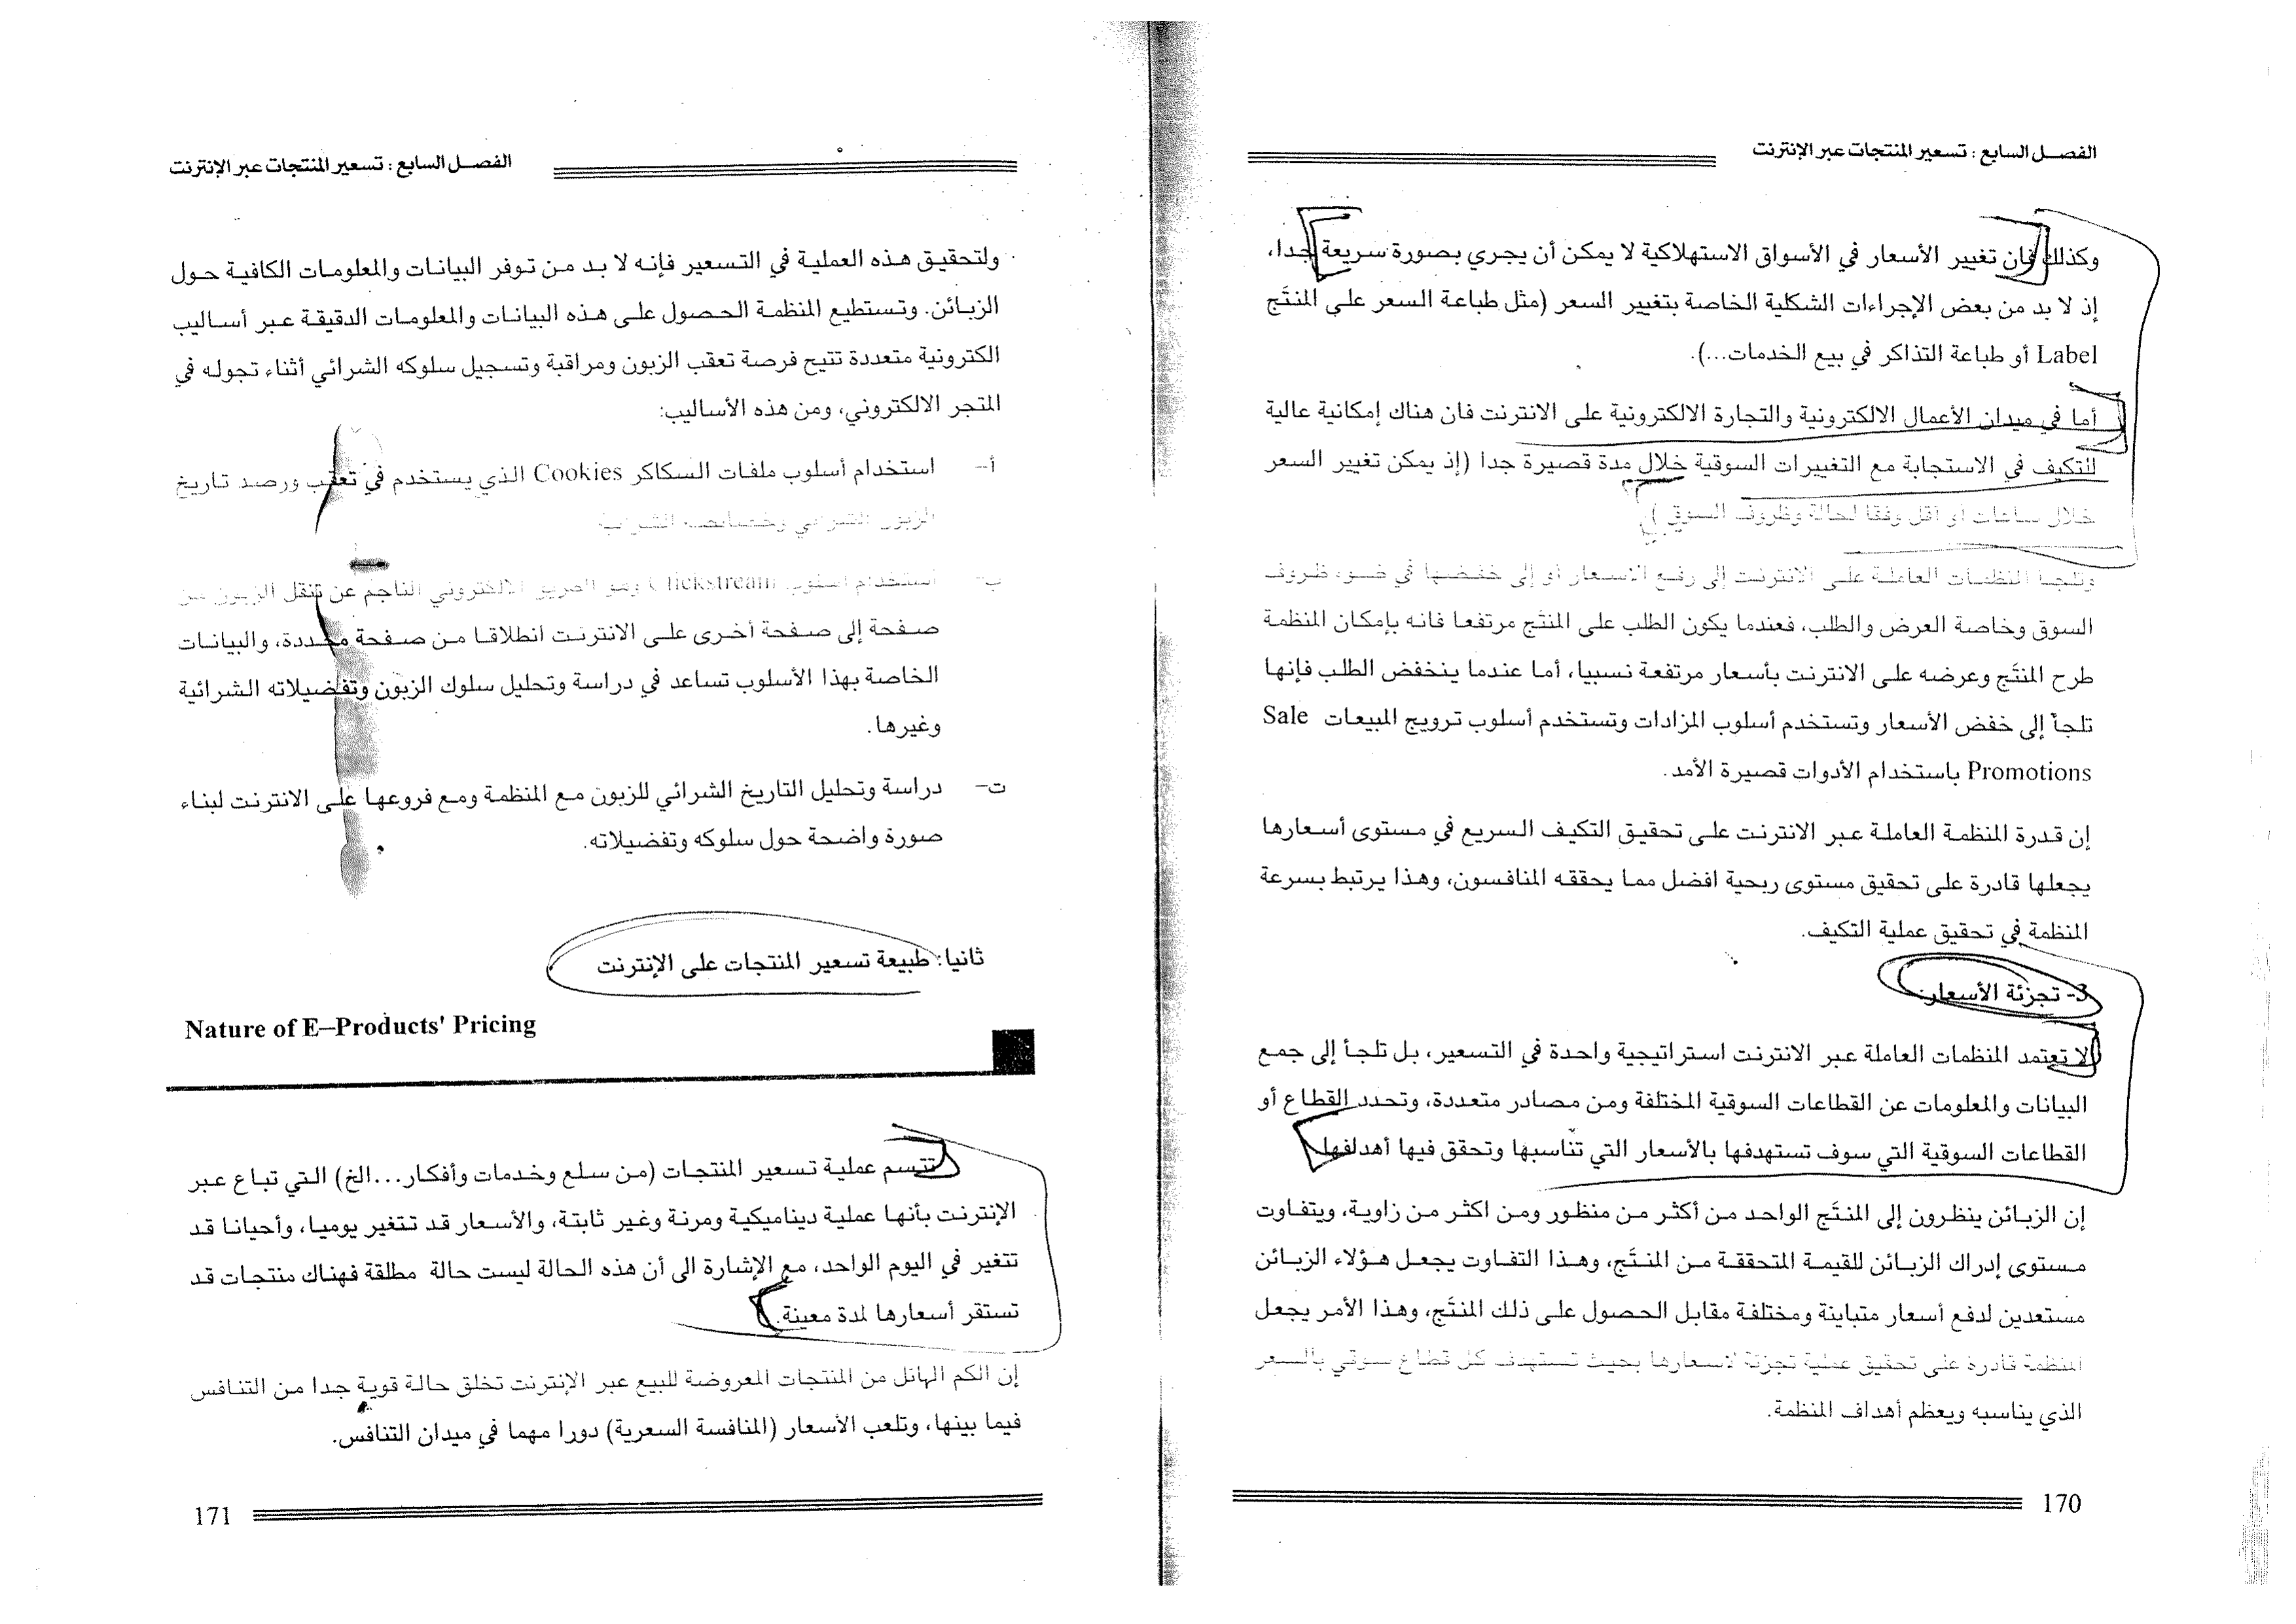 الفصل السابع : تسعير المنتجات عبر الإنترنت
وكذلك فان تغيير الأسعار في الأسواق الاستهلاكية لا يمكن أن يجري بصورة سريعة جدا،
إذ لا بد من بعض الإجراءات الشكلية الخاصة بتغيير السعر (مثل طباعة السعر على المنتَج
Label أو طباعة التذاكر في بيع الخدمات...).
أما في ميدان الأعمال الالكترونية والتجارة الالكترونية على الانترنت فان هناك إمكانية عالية
للتكيف في الاستجابة مع التغييرات السوقية خلال مدة قصيرة جدا (إذ يمكن تغيير السعر
خلال ساعات أو أقل وفقا لحالة وظروف السوق).
وتلجأ المنظمات العاملة على الانترنت إلى رفع الأسعار أو إلى خفضها في ضوء ظروف
السوق وخاصة العرض والطلب، فعندما يكون الطلب على المنتَج مرتفعا فانه بإمكان المنظمة
طرح المنتَج وعرضه على الانترنت بأسعار مرتفعة نسبيا، أما عندما ينخفض الطلب فإنها
تلجأ إلى خفض الأسعار وتستخدم أسلوب المزادات وتستخدم أسلوب ترويج المبيعات Sale
Promotions باستخدام الأدوات قصيرة الأمد.
إن قدرة المنظمة العاملة عبر الانترنت على تحقيق التكيف السريع في مستوى أسعارها
يجعلها قادرة على تحقيق مستوى ربحية افضل مما يحققه المنافسون، وهذا يرتبط بسرعة
المنظمة في تحقيق عملية التكيف.
3- تجزئة الأسعار:
لا تعتمد المنظمات العاملة عبر الانترنت استراتيجية واحدة في التسعير، بل تلجأ إلى جمع
البيانات والمعلومات عن القطاعات السوقية المختلفة ومن مصادر متعددة، وتحدد القطاع أو
القطاعات السوقية التي سوف تستهدفها بالأسعار التي تناسبها وتحقق فيها أهدافها.
إن الزبائن ينظرون إلى المنتَج الواحد من أكثر من منظور ومن اكثر من زاوية، ويتفاوت
مستوى إدراك الزبائن للقيمة المتحققة من المنتَج، وهذا التفاوت يجعل هؤلاء الزبائن
مستعدين لدفع أسعار متباينة ومختلفة مقابل الحصول على ذلك المنتَج، وهذا الأمر يجعل
المنظمة قادرة على تحقيق عملية تجزئة لأسعارها بحيث تستهدف كل قطاع سوقي بالسعر
الذي يناسبه ويعظم أهداف المنظمة.
170
الفصل السابع : تسعير المنتجات عبر الإنترنت
ولتحقيق هذه العملية في التسعير فإنه لا بد من توفر البيانات والمعلومات الكافية حول
الزبائن. وتستطيع المنظمة الحصول على هذه البيانات والمعلومات الدقيقة عبر أساليب
الكترونية متعددة تتيح فرصة تعقب الزبون ومراقبة وتسجيل سلوكه الشرائي أثناء تجوله في
المتجر الالكتروني، ومن هذه الأساليب:
أ- استخدام أسلوب ملفات السكاكر Cookies الذي يستخدم في تعقب ورصد تاريخ
الزبون الشرائي وخصائصه الشرائية
ب- استخدام أسلوب Clickstream وهو الطريق الالكتروني الناجم عن تنقل الزبون من
صفحة إلى صفحة أخرى على الانترنت انطلاقا من صفحة محددة، والبيانات
الخاصة بهذا الأسلوب تساعد في دراسة وتحليل سلوك الزبون وتفضيلاته الشرائية
وغيرها.
ت- دراسة وتحليل التاريخ الشرائي للزبون مع المنظمة ومع فروعها على الانترنت لبناء
صورة واضحة حول سلوكه وتفضيلاته.
ثانيا: طبيعة تسعير المنتجات على الإنترنت
Nature of E–Products' Pricing
تتسم عملية تسعير المنتجات (من سلع وخدمات وأفكار...الخ) التي تباع عبر
الإنترنت بأنها عملية ديناميكية ومرنة وغير ثابتة، والأسعار قد تتغير يوميا، وأحيانا قد
تتغير في اليوم الواحد، مع الإشارة الى أن هذه الحالة ليست حالة مطلقة فهناك منتجات قد
تستقر أسعارها لمدة معينة.
إن الكم الهائل من المنتجات المعروضة للبيع عبر الإنترنت تخلق حالة قوية جدا من التنافس
فيما بينها، وتلعب الأسعار (المنافسة السعرية) دورا مهما في ميدان التنافس.
171